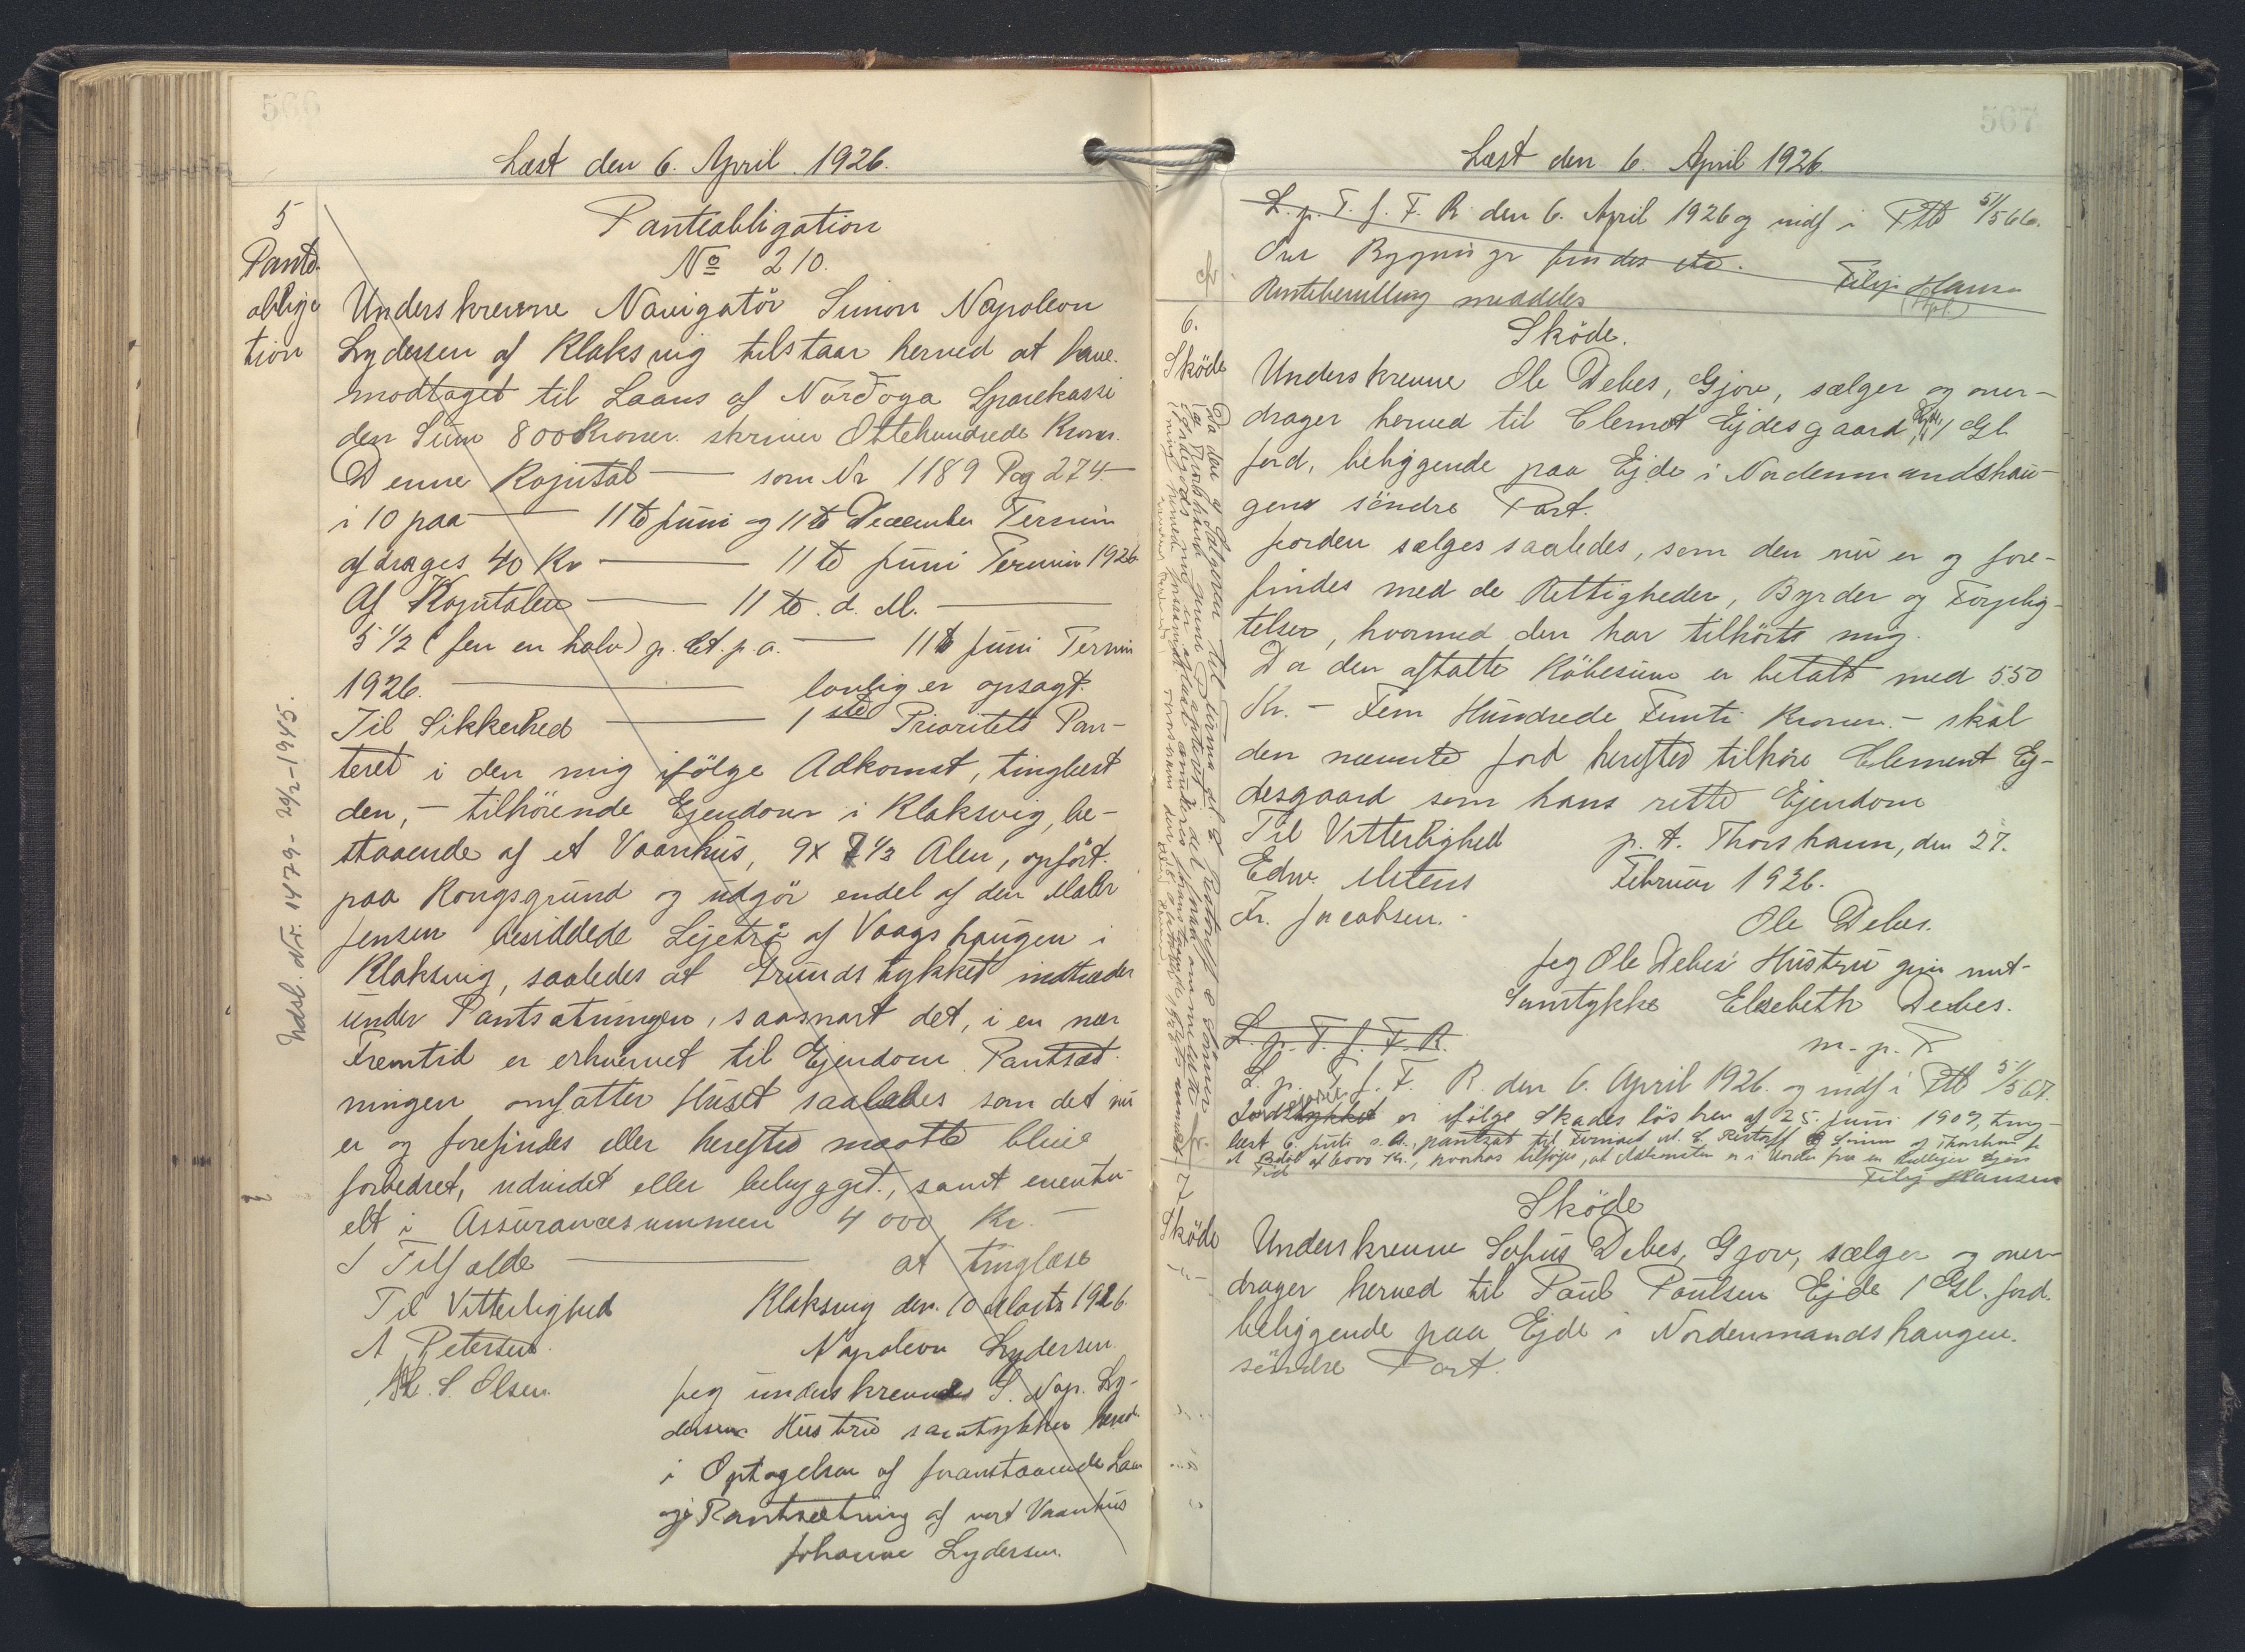 566
Læst den 6. April 1926.
5
Pant-
obliga
tion
Panteobligation
No 210.
Underskrevne Navigatör Simon Napoleon
Lydersen af Klaksvig tilstaar herved at have
modtaget til Laans af Nordoya Sparekassi
den Sum 800 Kroner skriver Ottehundrede Kroner.
Denne Kapital — som Nr 1189 Pag 274
i 10 paa — 11te Juni og 11te December Termin
afdrages 40 Kr — 11te Juni Termin 1926
Af Kapitalen — 11te d. M. —
5 1/2 (fem en halv) p. Ct. p. a. — 11te Juni Termin
1926. — lovlig er opsagt.
Til Sikkerhed — 1ste Prioritets Pan-
teret i den mig ifölge Adkomst, tinglæst
den, — tilhörende Ejendom i Klaksvig, be-
staaende af et Vaanhus, 9 x 7 1/2 Alen, opfört
paa Kongsgrund og udgör endel af den Maler
Jensen besiddede Lejetrö af Vaagshaugen i
Klaksvig, saaledes at Grundstykket indtræder
under Pantsætningen, saasnart det, i en nær
Fremtid er erhvervet til Ejendom. Pantsæt-
ningen omfatter Huset saaledes som det nu
er og forefindes eller herefter maatte blive
forbedret, udvidet eller bebygget, samt eventu-
elt i Assurancesummen 4000 Kr. —
I Tilfælde — at tinglæse
Til Vitterlighed Klaksvig den 10 Marts 1926.
A. Petersen. Napoleon Lydersen.
S. Olsen. Jeg underskrevne S. Nap. Ly-
dersens Hustru samtykker herved
i Optagelsen af foranstaaende Laan
og Pantsætning af vort Vaanhus
Johanne Lydersen.
Udsl. Nr. 1479 - 20/2 - 1945.
567
Læst den 6. April 1926.
L. p. T. f. F. R. den 6. April 1926 og indf i Ptb 51/566.
Om Bygninger findes etc.
Rentebevilling meddeles Filip Hansen
(kst.)
6.
Sköde
Sköde.
Underskrevne Ole Debes, Gjov, sælger og over-
drager herved til Clement Ejdesgaard, Ejde, 1 Gl
Jord, beliggende paa Ejde i Nordenmandshau-
gens söndre Part.
Jorden sælges saaledes, som den nu er og fore-
findes med de Rettigheder, Byrder og Forplig-
telser, hvormed den har tilhört mig.
Da den aftalte Köbesum er betalt med 550
Kr. — Fem Hundrede Femti Kroner. — skal
den nævnte Jord herefter tilhöre Clement Ej-
desgaard som hans rette Ejendom
Til Vitterlighed p. t. Thorshavn, den 27.
Edw. Mitens Februar 1926.
Fr. Jacobsen. Ole Debes.
Jeg Ole Debes' Hustru giver mit
Samtykke Elsebeth Debes.
m. p. P.
L. p. T. f. F. R.
L. p. T. f. F. R. den 6. April 1926. og indf i Ptb 51/567.
Jordstykket er ifölge Skadeslösbrev af 25. Juni 1907, ting-
læst 6. Juli s. A., pantsat til Firmaet M. C. Restorff & Sönner af Thorshavn for
et Belöb af 6000 Kr., hvorhos tilföjes, at Adkomsten er i Orden fra en tidligere Ejers
Tid Filip Hansen
7
Sköde
Sköde
Underskrevne Sofus Debes, Gjov, sælger og over-
drager herved til Paul Poulsen Ejde 1 Gl. Jord.
beliggende paa Ejde i Nordenmandshaugen.
söndre Part.